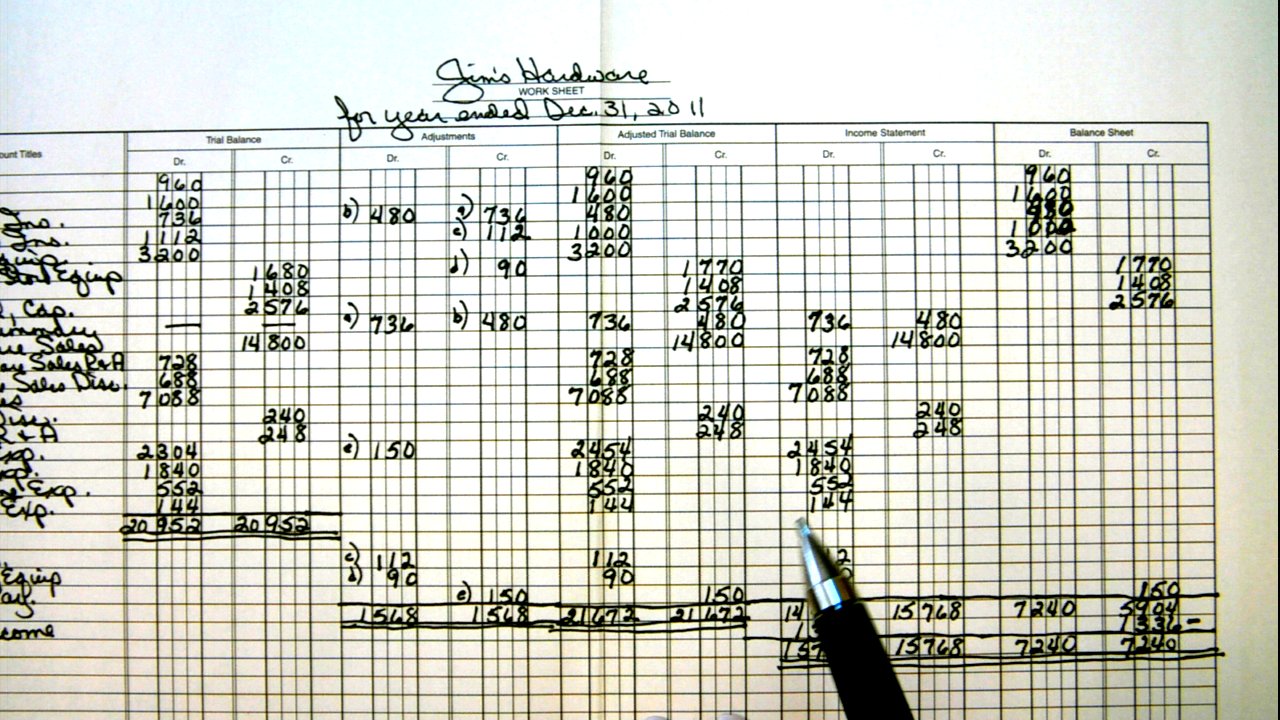 Jim's Hardware
WORK SHEET
for year ended Dec. 31, 2011
ount Titles Trial Balance Adjustments Adjusted Trial Balance Income Statement Balance Sheet
Dr. Cr. Dr. Cr. Dr. Cr. Dr. Cr. Dr. Cr.
960 960 960
1600 1600 1600
Ins. 736 b) 480 a) 736 480
Ins. 1112 c) 112 1000 1000
quip. 3200 3200 3200
Store Equip 1680 d) 90 1770 1770
1408 1408 1408
, Cap. 2576 2576 2576
ummary — — a) 736 b) 480 736 480 736 480
are Sales 14800 14800 14800
are Sales R+A 728 728 728
Sales Disc. 688 688 688
es 7088 7088 7088
Disc. 240 240 240
R + A 248 248 248
xp. 2304 e) 150 2454 2454
xp. 1840 1840 1840
Exp. 552 552 552
Exp. 144 144 144
20952 20952
c) 112 112 2
Equip d) 90 90
ay. e) 150 150 150
1568 1568 21672 21672 14 15768 7240 5904
come 1 1336 –
157 15768 7240 7240